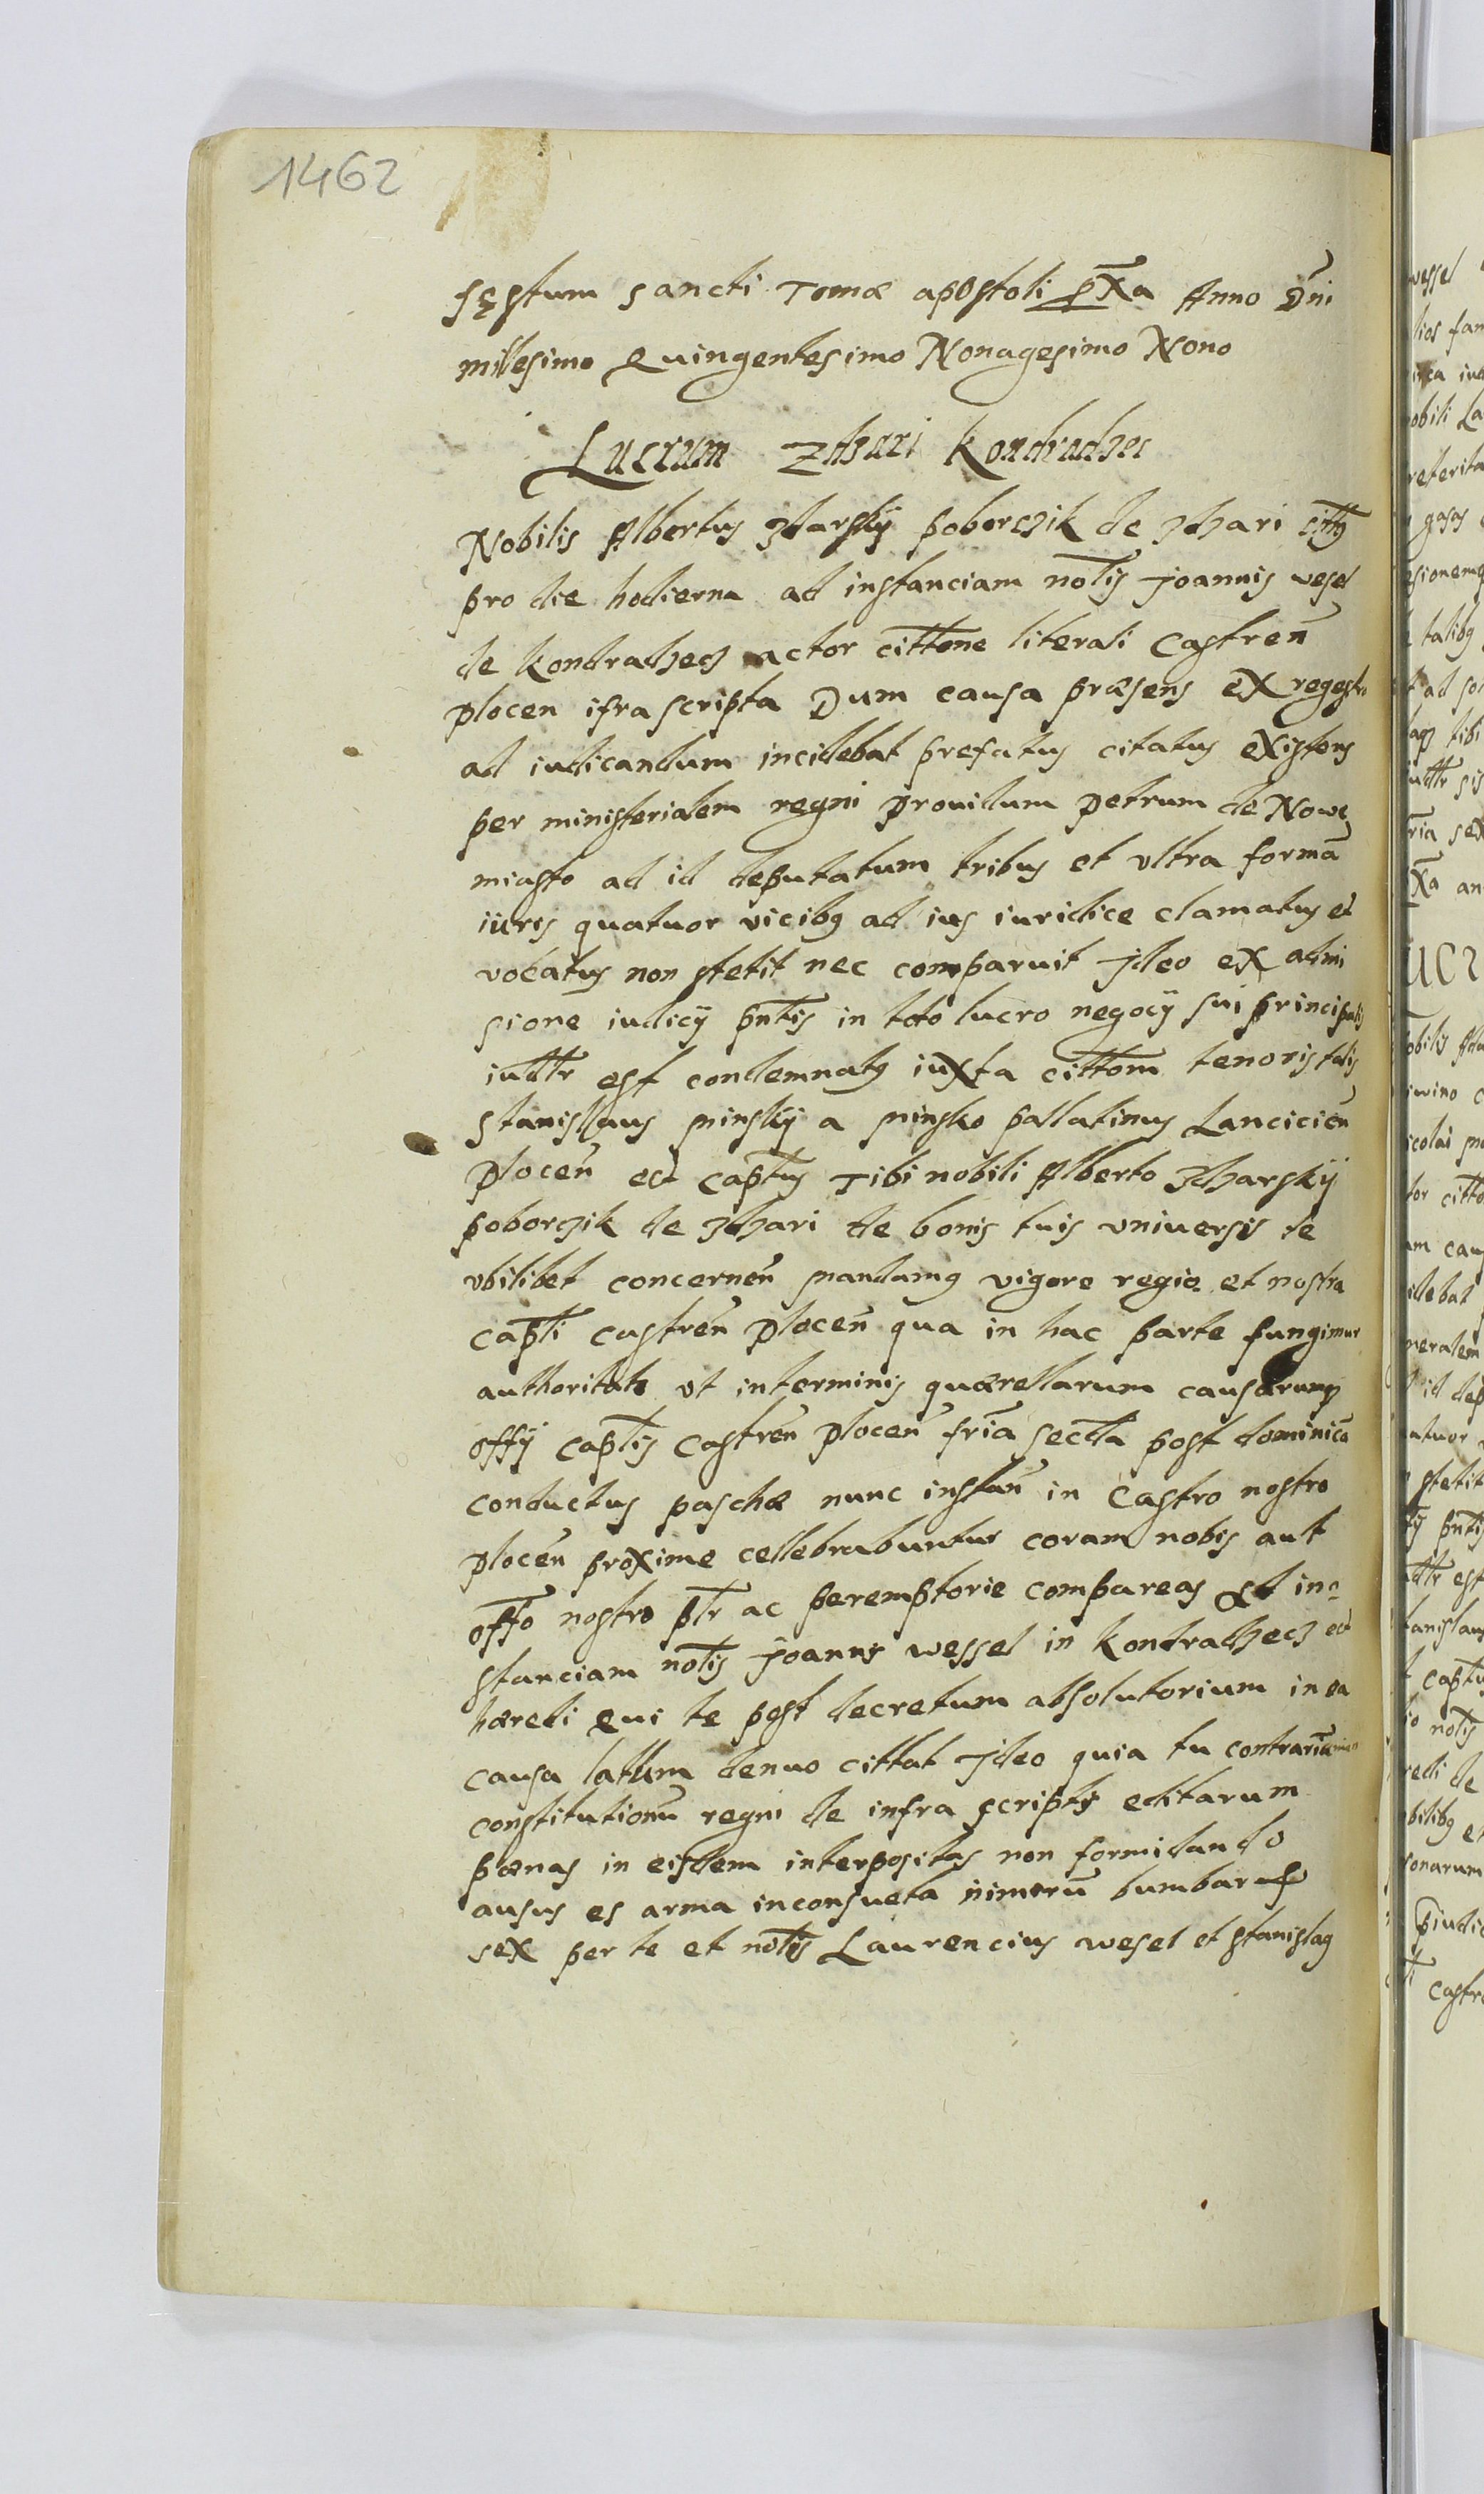 1462
fęstum sancti Tomæ apostoli p̄xa Anno Dn̄i
millesimo Quingentesimo Nonagesimo Nono
Lucrum Zdzari Kondradzec
Nobilis Albertus Zdzarskÿ poborczik de Zdzari
pro die hodierna ad instanciam notīs Joannis wesel
de Kondradzecz actor cittōne literali Castren̄
plocen ifrascripta Dum causa præsens ex regestro
ad iudicandum incidebat prefatus citatus existens
per ministerialem regni prouidum petrum de Nowe
miasto ad id deputatum tribus et vltra formā
iuris quatuor vicibq ad ius iuridice clamatus et
vocatus non stetit nec comparuit Jdeo ex admi
sione iudicÿ pn̄tis in toto lucro negocÿ sui principalis
iudtr est condemnatq iuxta cittōm tenoris talis
Stanislaus minskÿ a minsko pallatinus Lancicien̄
plocen̄ et captūs Tibi nobili Alberto Zdzarskÿ
poborczik de Zdzari de bonis tuis vniuersis te
vbilibet concernen̄ mandamq vigore regia et nostra
captī castren̄ plocen̄ qua in hac parte fungimur
authoritate vt interminis quærellarum causarumq
offÿ captīs castren̄ plocen̄ fr̄ia sec̄da post dominicā
conductus paschæ nunc instan̄ in Castro nostro
plocen̄ proxime cellebrabuntur coram nobis aut
offo nostro ptr̄ ac peremptorie compareas Ad in-
stanciam notīs Joannis wessel in Kondradzecz
hæredi qui te post decretum absolutorium in ea
causa latum denuo cittat Jdeo quia tu
constitutionū regni de infra scriptis editarum
pœnas in eisdem interpositas non formidando
ausus es arma inconsueta nimerū bumbardas
sex per te et notīs Laurencius wesel et stanislaq